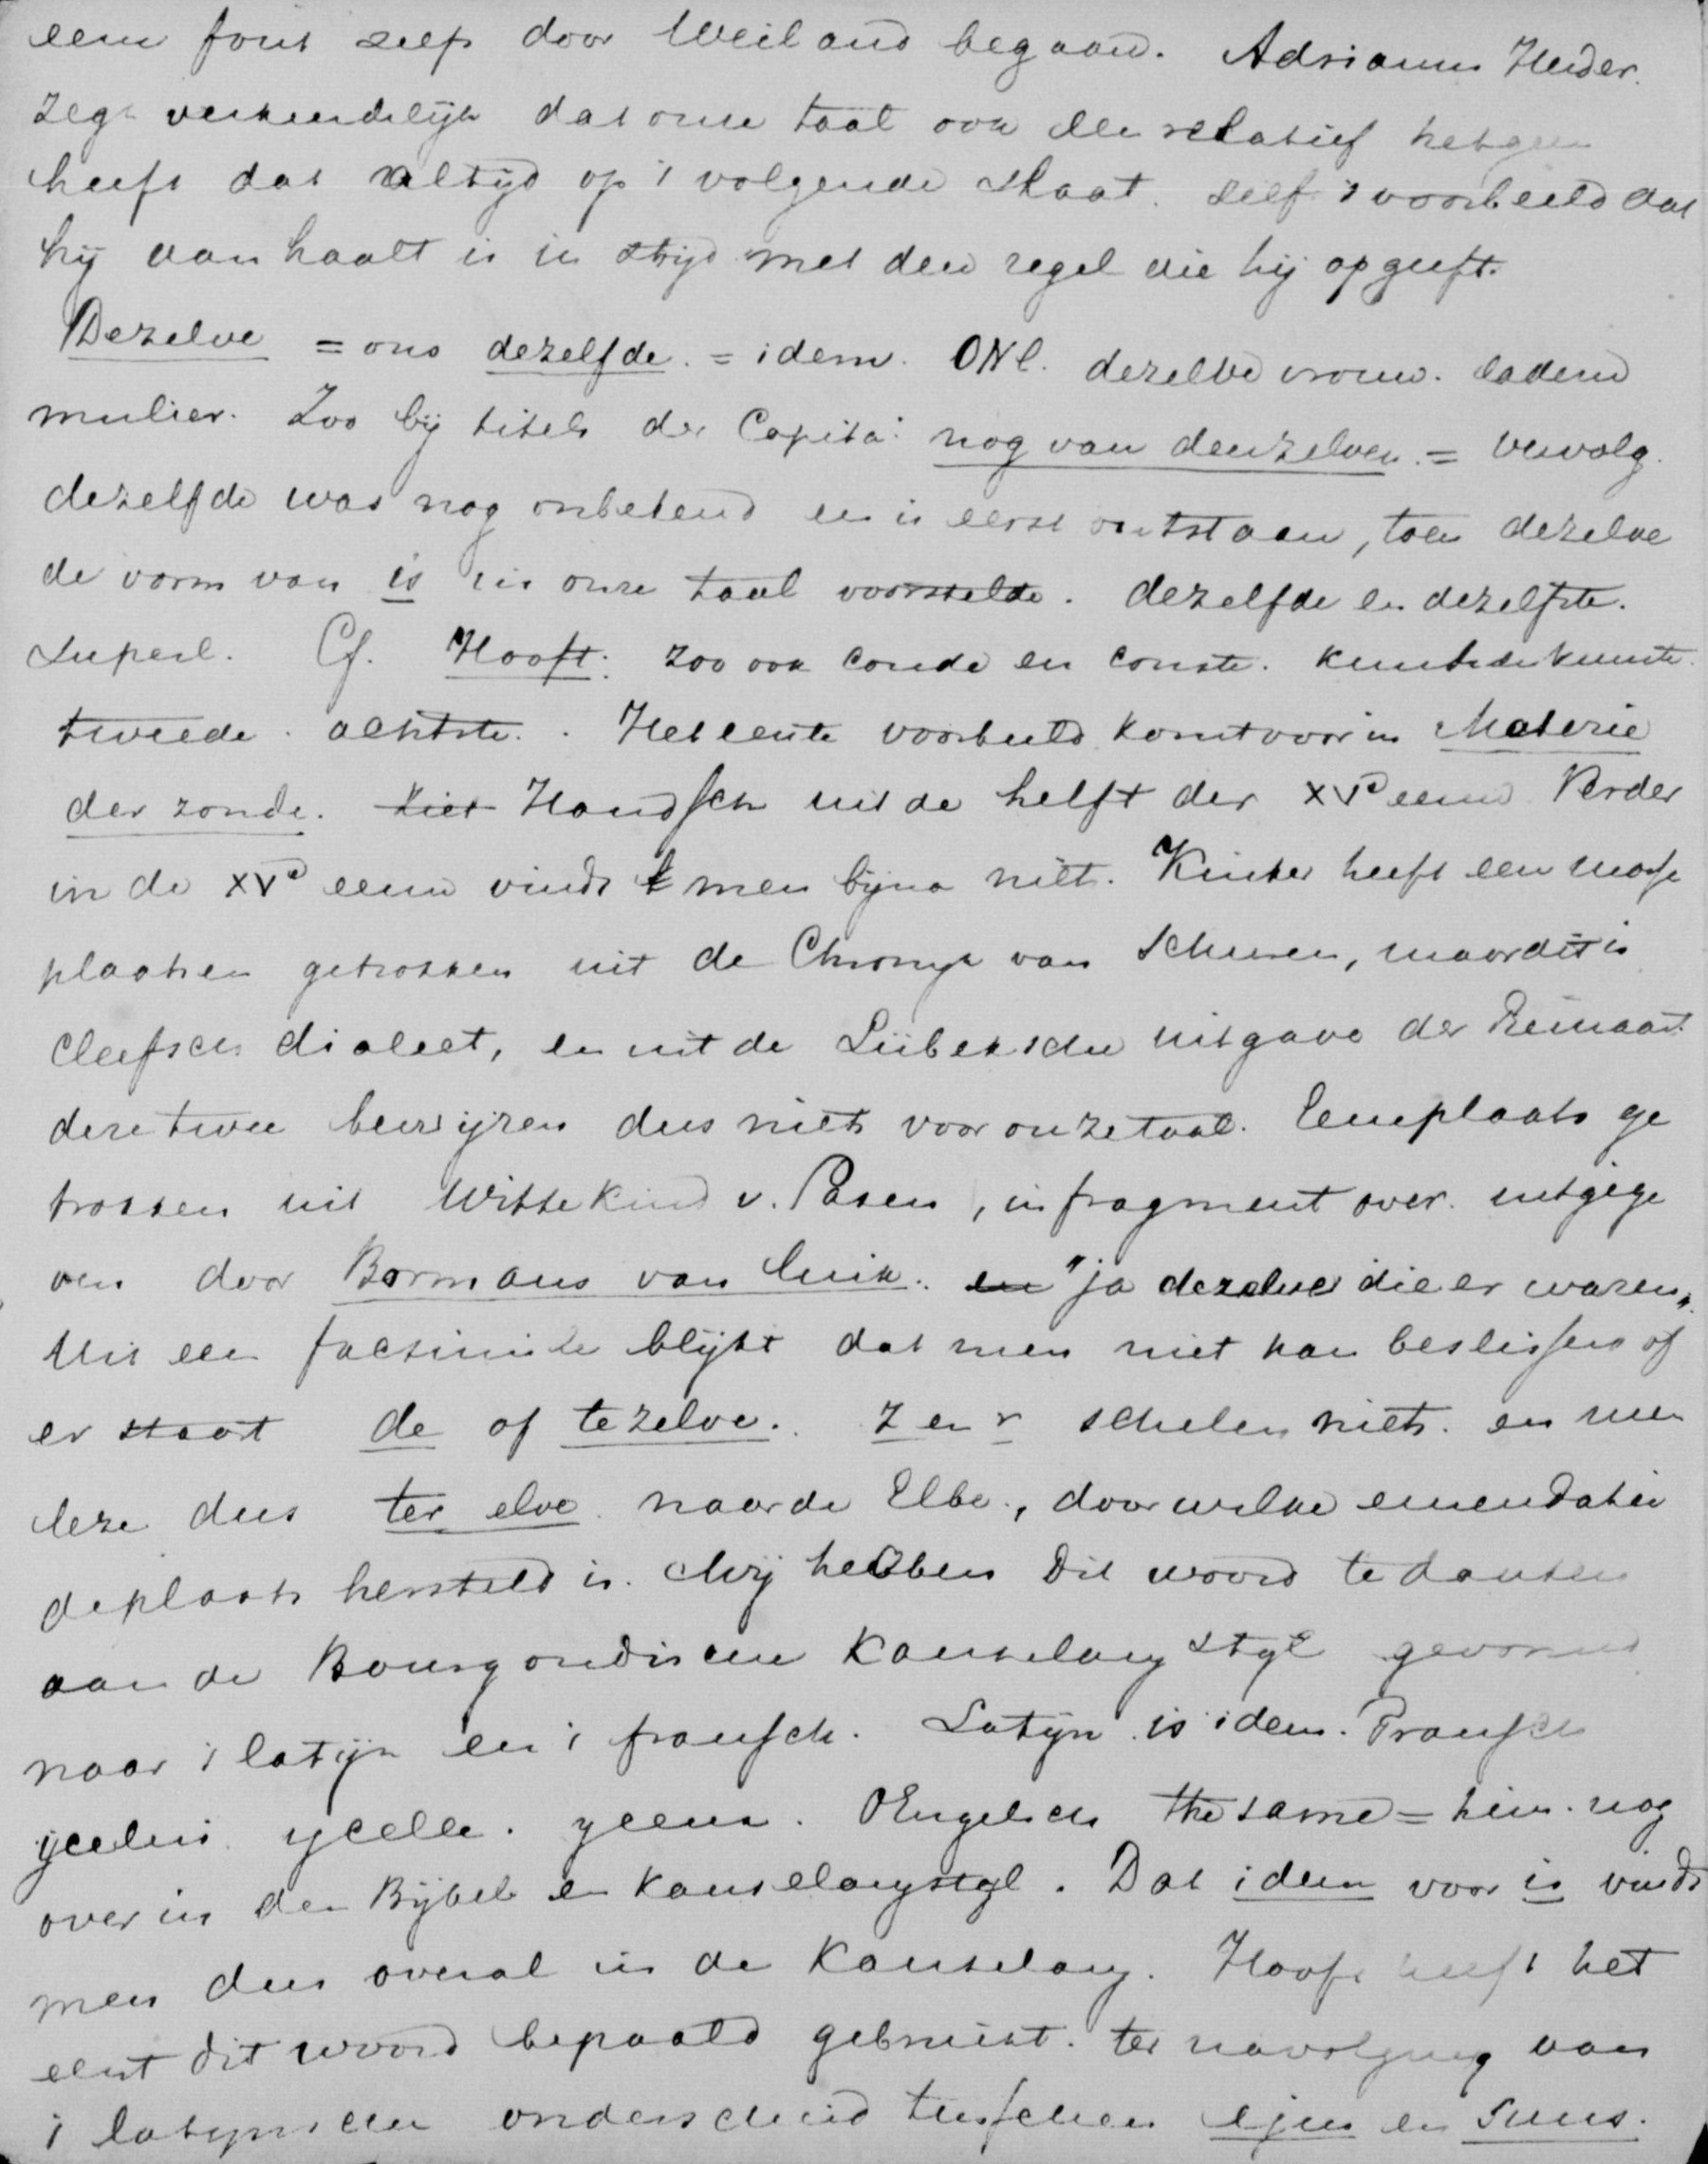 eene fout zelfs door Weiland begaan. Adrianus Heider.
zegt verkeerdelijk dat onze taal ook een relatief hetgeen
heeft dat altijd op 't volgende slaat. zelf 't voorbeeld dat
hij aan haalt is in strijd met den regel die hij opgeeft.
Dezelve = ons dezelfde. = idem. ONl. dezelve vrouw. eadem
mulier. Zoo bij titels der Capita: nog van denzelven. = vervolg.
dezelfde was nog onbekend en is eerst ontstaan, toen dezelve
de vorm van is in onze taal voorstelde. dezelfde en dezelfste.
Superl. Cf. Hooft. zoo ook conde en conste. kunde kunste.
tweede. achtste. Het eerste voorbeeld komt voor in Materie
der zonde. Niet Handsch uit de helft der XVe eeuw Verder
in de XVe eeuw vindt men bijna niets. Kinker heeft een
plaatsen getrokken uit de Chronyk van Schuren, maar dit is
Cleefsch dialect, en uit de Lübeksche uitgave der Reinaart
deze twee bewijzen dus niets voor onze taal. Eene plaats ge
trokken uit Wittekind v. Sasen, in fragment over. uitgege
ven door Bormans van Luik. en "ja dezelve die er waren".
Uit een facsimile blijkt dat men niet kan beslissen of
er staat de of tezelve. z en r schelen niets. en men
leze dus ter elve naar de Elbe, door welke emendatie
de plaats hersteld is. Wij hebben dit woord te danken
aan de Bourgondischen Kanselary styl gevormd
naar 't latijn en 't fransch. Latijn is idem. Fransch
ycelui ycelle. yceux. OEngelsch the same = him. nog
over in den Bijbel en kanselarystyl. Dat idem voor is vindt
men dus overal in de Kanselary. Hooft heeft het
eerst dit woord bepaald gebruikt. ter navolging van
't latynschen onderscheid tusschen ejus en suus.